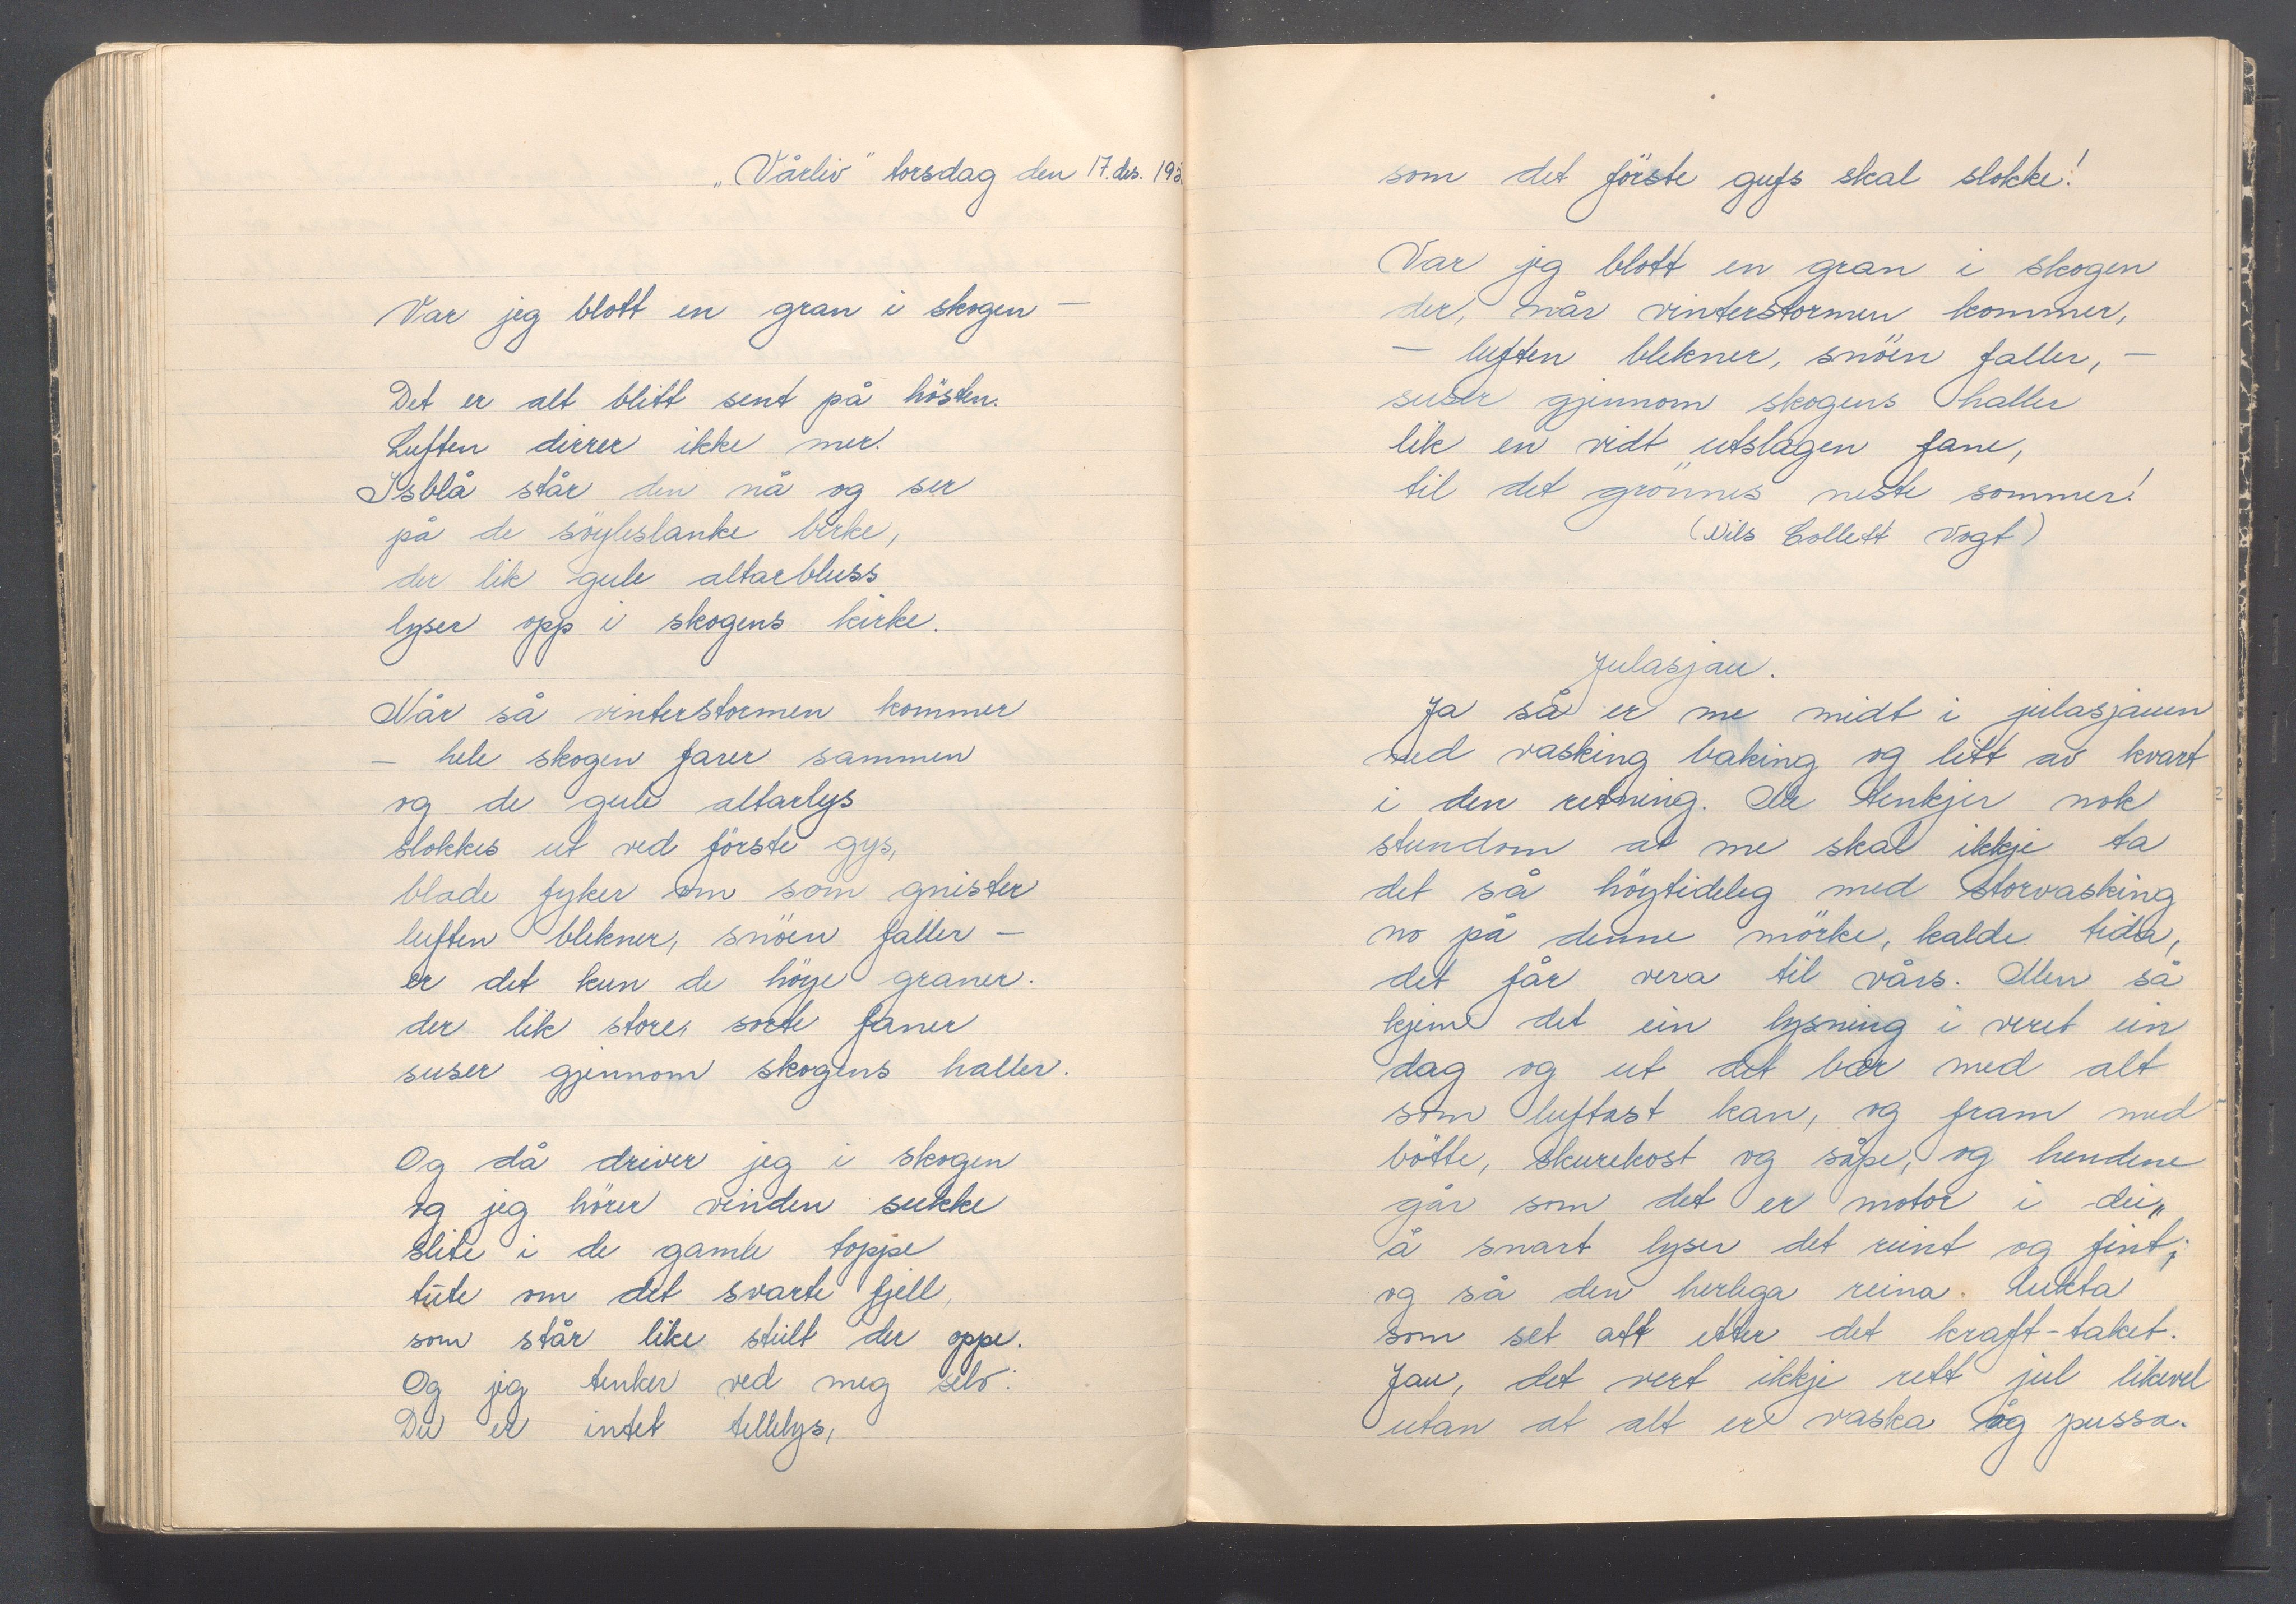 „Vårliv" torsdag den 17. des. 195
Var jeg blott en gran i skogen —
Det er alt blitt sent på hösten.
Luften dirrer ikke mer.
Isblå står den nå og ser
på de söyleslanke birke,
der lik gule altarbluss
lyser opp i skogens kirke.
Når så vinterstormen kommer
— hele skogen farer sammen
og de gule altarlys
slokkes ut ved förste gys,
blade fyker om som gnister
luften blekner, snöen faller —
er det kun de höye graner.
der lik store, sorte faner
suser gjennom skogens haller.
Og då driver jeg i skogen
og jeg hörer vinden sukke
slite i de gamle toppe
tute om det svarte fjell,
som står like stillt der oppe.
Og jeg tenker ved meg selv:
Du er intet tellelys,
som det förste gufs skal slokke!
Var jeg blott en gran i skogen
der, når vinterstormen kommer,
— luften blekner, snöen faller, —
suser gjennom skogens haller
lik en vidt utslagen fane,
til det grönnes neste sommer!
(Nils Collett Vogt)
Julasjau.
Ja så er me midt i julasjauen
med vasking baking og litt av kvart
i den retning. Me tenkjer nok
stundom at me skal ikkje ta
det så höytideleg med storvasking
no på denne mörke, kalde tida,
det får vera til vårs. Men så
kjem det ein lysning i veret ein
dag og ut det bær med alt
som luftast kan, og fram med
bötte, skurekost og såpe, og hendene
går som det er motor i dei„
å snart lyser det reint og fint;
og så den herlega reina. Lukta
som set att etter det kraft-taket.
Jau, det vert ikkje rett jul likevel
utan at alt er vaska og pussa.